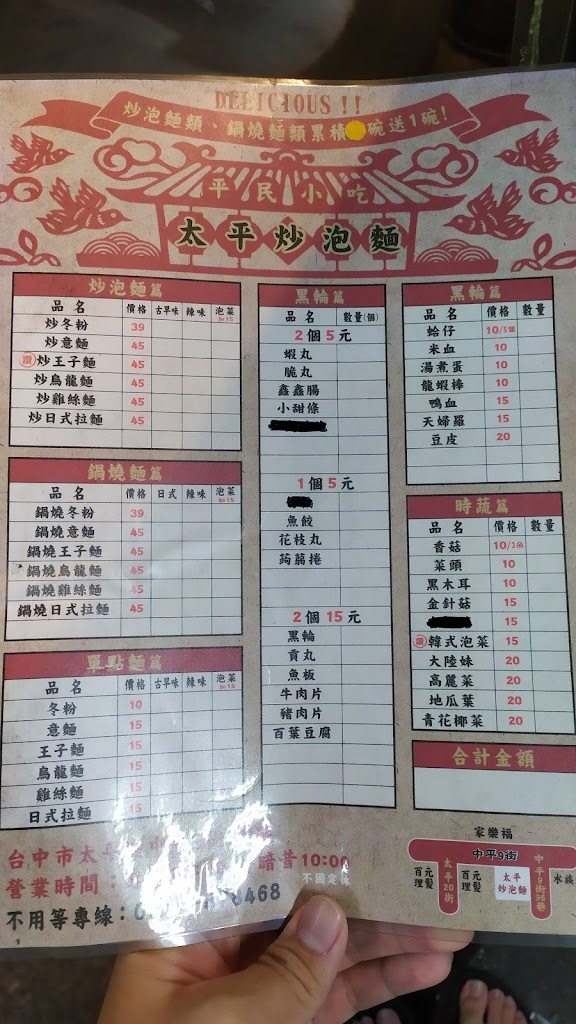 DELICIOUS !!
炒泡麵類、鍋燒麵類累積 碗送1碗!
平民小吃
太平炒泡麵
炒泡麵篇
品名 價格 古早味 辣味 泡菜 加15
炒冬粉 39
炒意麵 45
讚 炒王子麵 45
炒烏龍麵 45
炒雞絲麵 45
炒日式拉麵 45
鍋燒麵篇
品名 價格 日式 辣味 泡菜 加15
鍋燒冬粉 39
鍋燒意麵 45
鍋燒王子麵 45
鍋燒烏龍麵 45
鍋燒雞絲麵 45
鍋燒日式拉麵 45
單點麵篇
品名 價格 古早味 辣味 泡菜 加15
冬粉 10
意麵 15
王子麵 15
烏龍麵 15
雞絲麵 15
日式拉麵 15
黑輪篇
品名 數量(個)
2個5元
蝦丸
脆丸
鑫鑫腸
小甜條
1個5元
魚餃
花枝丸
蒟蒻捲
2個15元
黑輪
貢丸
魚板
牛肉片
豬肉片
百葉豆腐
黑輪篇
品名 價格 數量
蛤仔 10/5個
米血 10
湯煮蛋 10
龍蝦棒 10
鴨血 15
天婦羅 15
豆皮 20
時蔬篇
品名 價格 數量
香菇 10/3朵
菜頭 10
黑木耳 10
金針菇 15
15
讚 韓式泡菜 15
大陸妹 20
高麗菜 20
地瓜葉 20
青花椰菜 20
合計金額
台中市太平
營業時間: 暗昔10:00
不固定休
不用等專線: 8468
家樂福
中平9街
百元理髮
太平20街
百元理髮
太平炒泡麵
中平9街98巷
水族